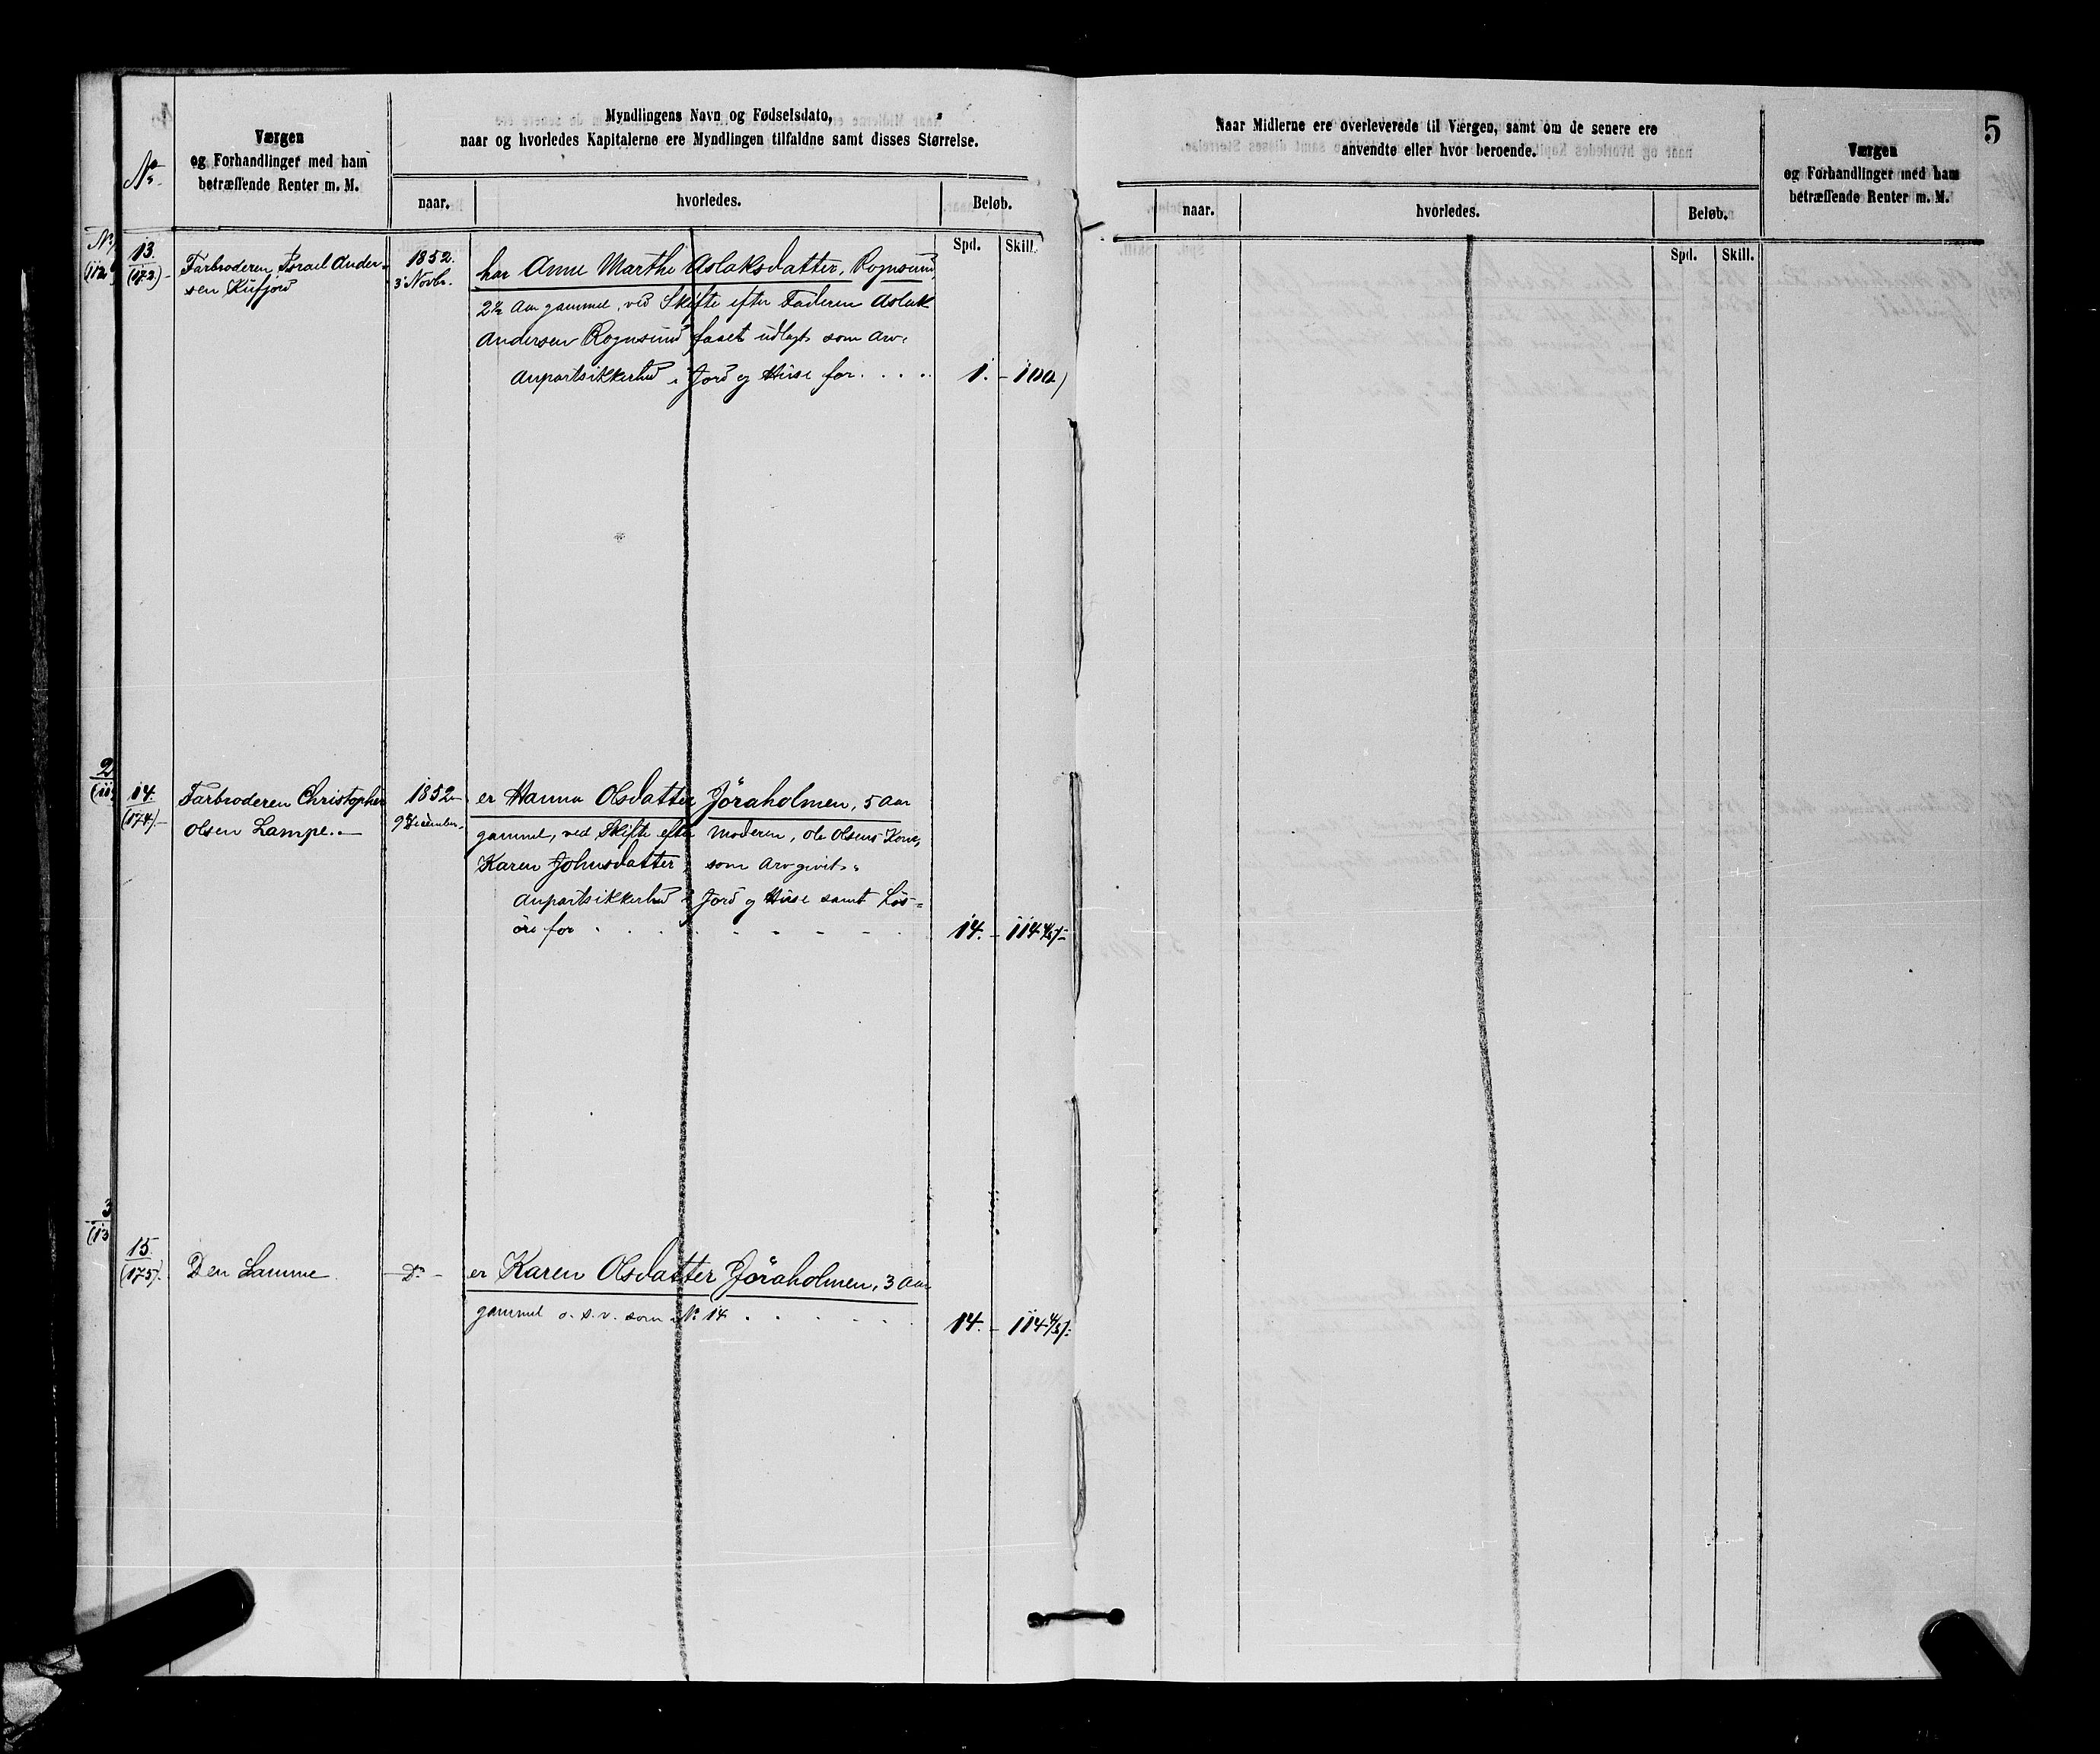 5
No.
Værgen
og Forhandlinger med ham
betræffende Renter m. M.
Myndlingens Navn og Fødselsdato,
naar og hvorledes Kapitalerne ere Myndlingen tilfaldne samt disses Størrelse.
naar.
hvorledes.
Beløb.
Spd.
Skill.
Naar Midlerne ere overleverede til Værgen, samt om de senere ere
anvendte eller hvor beroende.
naar.
hvorledes.
Beløb.
Spd.
Skill.
Værgen
og Forhandlinger med ham
betræffende Renter m. M.
13.
(173)-
Farbroderen Israel Ander-
sen Kufjord
1852.
3 Novbr.
har Anne Marthe Aslaksdatter, Rognsund
2½ Aar gammel, ved Skifte efter Faderen Aslak
Andersen Rognsund faaet udlagt som Arv.
Anpartsikkerhed i Jord og Huse for . . . .
1. - 100
14.
(174).-
Farbroderen Christopher
Olsen Lampe.-
1852
9 December
er Hanna Olsdatter Jöraholmen, 5 Aar
gammel, ved Skifte efter Moderen, Ole Olsens Kone,
Karen Johnsdatter, som Arv givet
Anpartsikkerhed i Jord og Huse samt Lös-
öre for . . . . . . .
14. - 114 4/5
15.
(175).
Den Samme
- Do -
er Karen Olsdatter Jöraholmen, 3 Aar
gammel o. s. v. som No 14 . . . . .
14. - 114 4/5
2
3